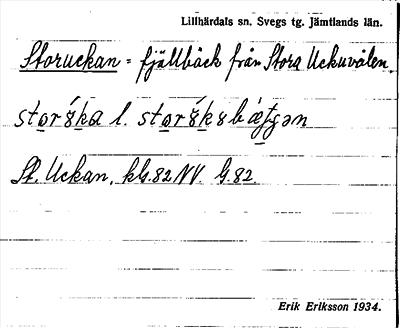 Lillhärdals sn. Svegs tg. Jämtlands län.
Storuckan = fjällbäck från Stora Uckuvålen.
St. Uckan, kbl.82NV. G.82.
Erik Eriksson 1934.